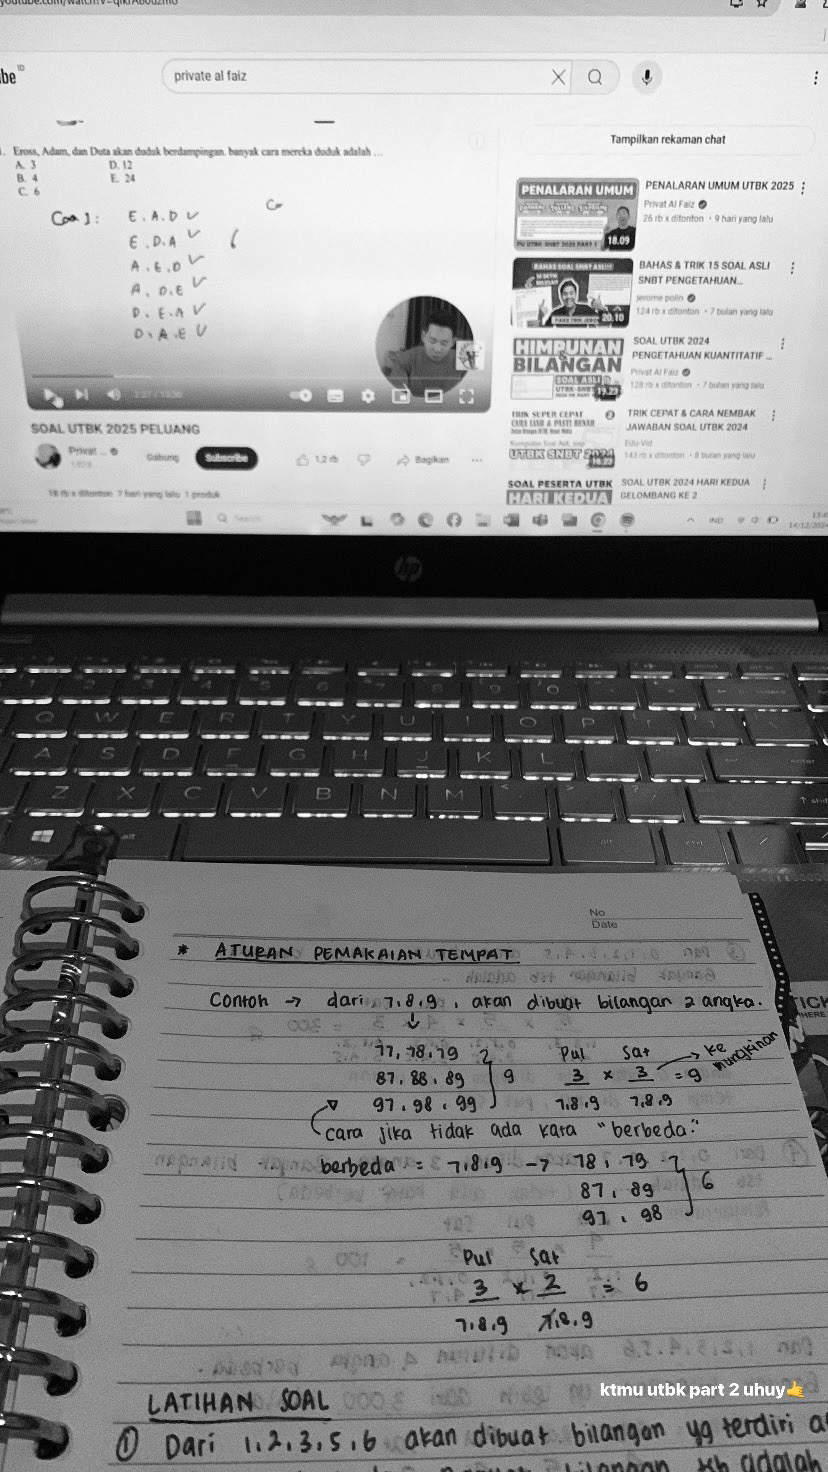 private al faiz
Tampilkan rekaman chat
Eross, Adam, dan Duta akan duduk berdampingan. banyak cara mereka duduk adalah ...
A. 3 D. 12
B. 4 E. 24
C. 6
Cara 1: E.A.D
E.D.A 6
A.E.D
A.D.E
D.E.A
D.A.E
SOAL UTBK 2025 PELUANG
Privat ...
Gabung
Subscribe
1,2 rb
Bagikan
18 rb x ditonton 7 hari yang lalu 1 produk
PENALARAN UMUM
18.09
PENALARAN UMUM UTBK 2025
Privat Al Faiz
26 rb x ditonton • 9 hari yang lalu
BAHAS SOAL SNBT ASLI!!!
20.10
BAHAS & TRIK 15 SOAL ASLI
SNBT PENGETAHUAN...
jerome polin
124 rb x ditonton • 7 bulan yang lalu
HIMPUNAN
BILANGAN
SOAL ASLI
SOAL UTBK 2024
PENGETAHUAN KUANTITATIF ...
Privat Al Faiz
128 rb x ditonton • 7 bulan yang lalu
TRIK SUPER CEPAT
UTBK SNBT 2024
TRIK CEPAT & CARA NEMBAK
JAWABAN SOAL UTBK 2024
143 rb x ditonton • 8 bulan yang lalu
SOAL PESERTA UTBK
HARI KEDUA
SOAL UTBK 2024 HARI KEDUA
GELOMBANG KE 2
Search
IND
hp
Q W E R T Y U I O P
A S D F G H J K L
Z X C V B N M
No
Date
* ATURAN PEMAKAIAN TEMPAT
Contoh → dari 7,8,9, akan dibuat bilangan 2 angka.
77, 78, 79
87, 88, 89 9
97, 98, 99
Pul Sat
3 x 3 = 9 → ke mungkinan
7,8,9 7,8,9
cara jika tidak ada kata "berbeda"
berbeda = 7,8,9 → 78, 79
87, 89 6
97, 98
Pul Sat
3 x 2 = 6
7,8,9 7,8,9
LATIHAN SOAL
ktmu utbk part 2 uhuy🤙
① Dari 1,2,3,5,6 akan dibuat bilangan yg terdiri
bilangan tsb adalah